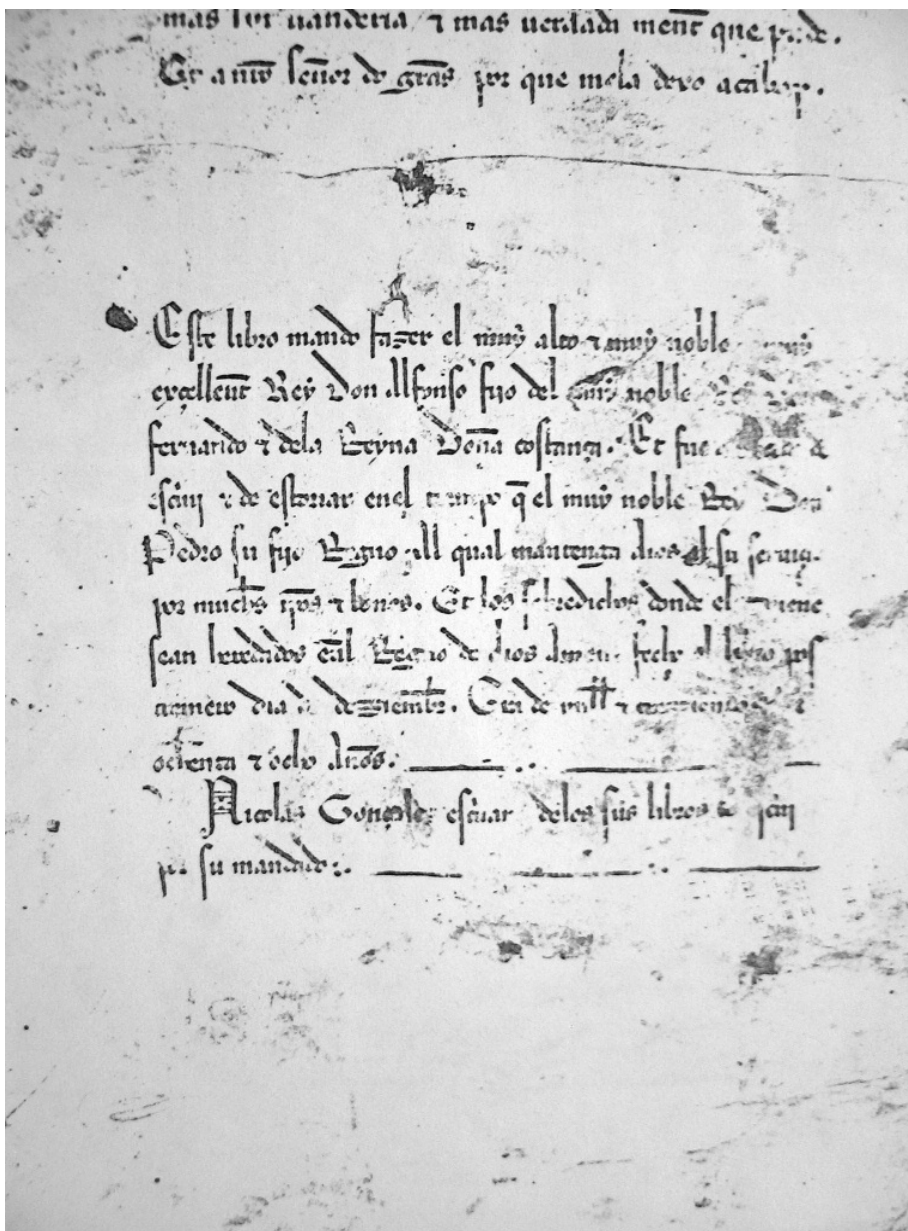 mas lui uanderia τ mas uerdadi ment que pude.
Et a nr̃o señor do gr̃as por que me la dexo acabar.
Este libro mando fazer el muy alto τ muy noble muy
exçellent Rey Don Alfonso fijo del muy noble Rey Don
fernando τ dela Reyna Doña costança. Et fue de
escriuir τ de estoriar enel tiempo q̃ el muy noble Rey Don
Pedro su fijo Regno Al qual mantenga dios al su seruiçio
por muchos tp̃os τ bonos. Et los sobredichos donde el uiene
sean heredados enal Regno de dios Amen. fecho el libro
dia de deziembr̃. Era de mill τ trezientos
ochenta τ ocho Annos.
Nicolas Gonçales escriuan delos sus libros escriui
por su mandado:.